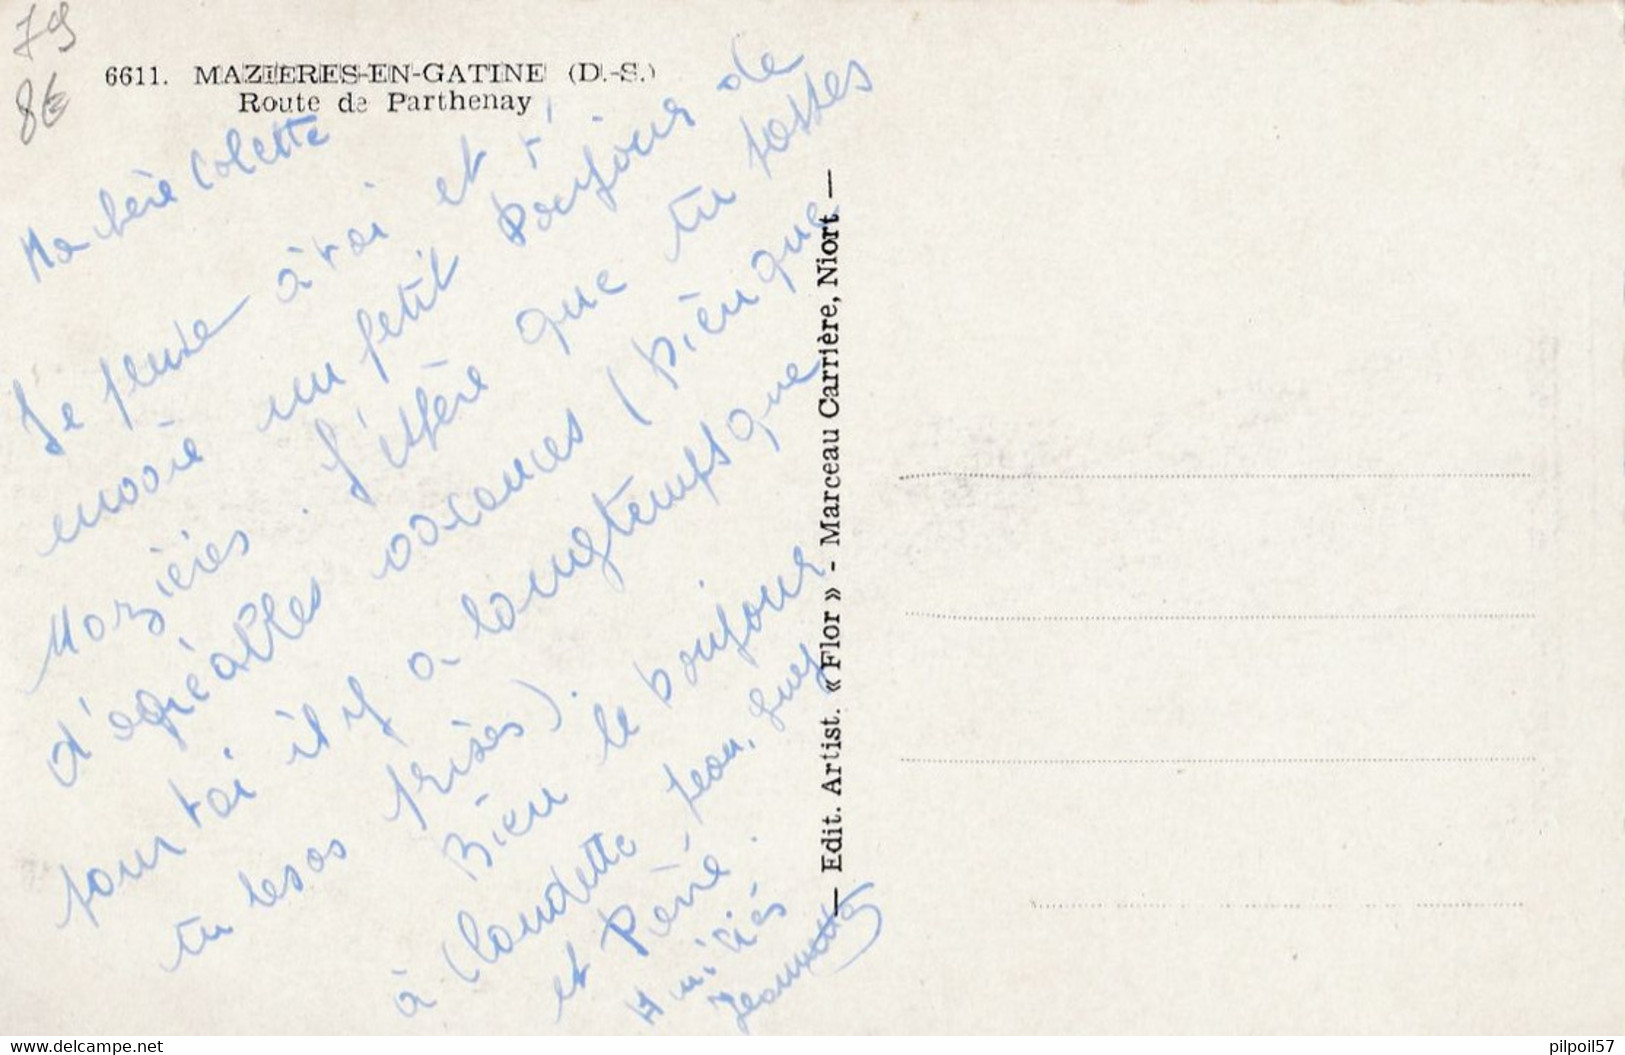 79
8€
6611. MAZIERES-EN-GATINE (D.-S.)
Route de Parthenay
Ma chère Colette
Je pense à toi et t'
envoie un petit bonjour de
Mazières. J'espère que tu passes
d'agréables vacances (bien que
pour toi il y a longtemps que
tu les as prises).
Bien le bonjour
à Claudette, Jean, Guy
et Pierre.
Amitiés
Jeannette
— Edit. Artist. « Flor » - Marceau Carrière, Niort —
www.delcampe.net
pilpoil57